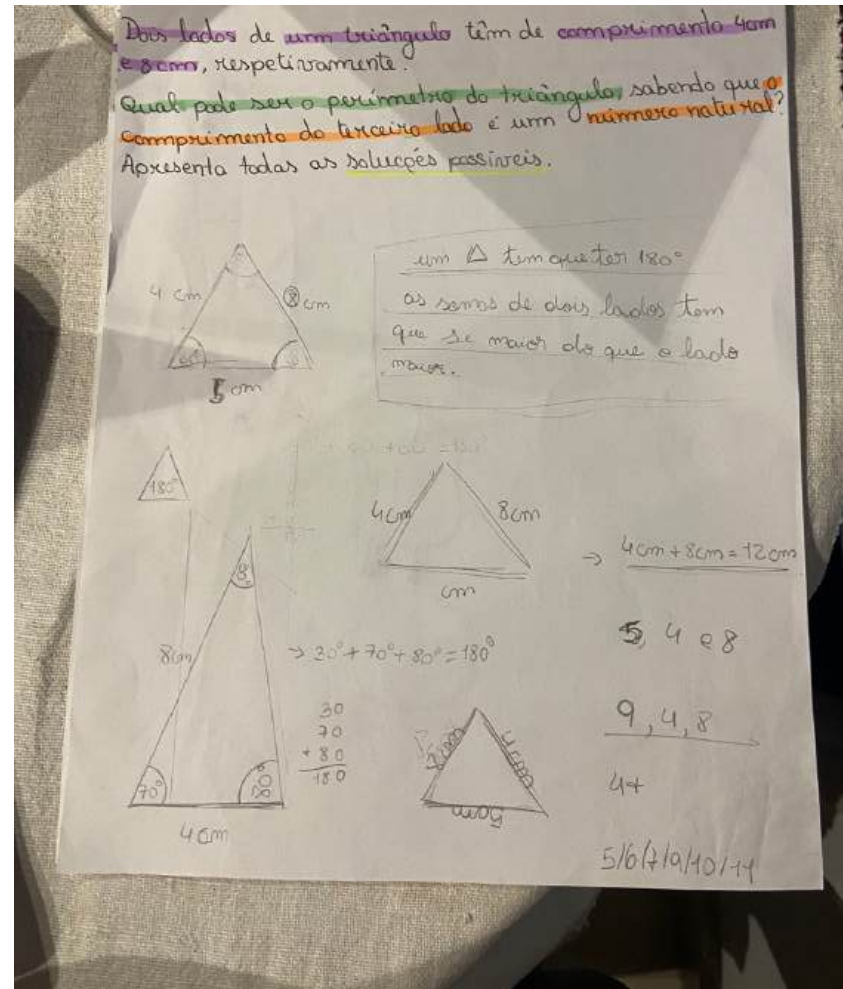 Dois lados de um triângulo têm de comprimento 4cm
e 8cm, respetivamente.
Qual pode ser o perímetro do triângulo, sabendo que o
comprimento do terceiro lado é um número natural?
Apresenta todas as soluções possíveis.
um △ tem que ter 180°
as somas de dois lados tem
que se maior do que o lado
maior.
4 cm
8 cm
5 cm
180°
4cm
8cm
cm
→ 4cm + 8cm = 12cm
5, 4 e 8
9, 4, 8
4+
5/6/7/9/10/11
8cm
70°
80°
4cm
→ 30° + 70° + 80° = 180°
30
70
+ 80
180
4cm